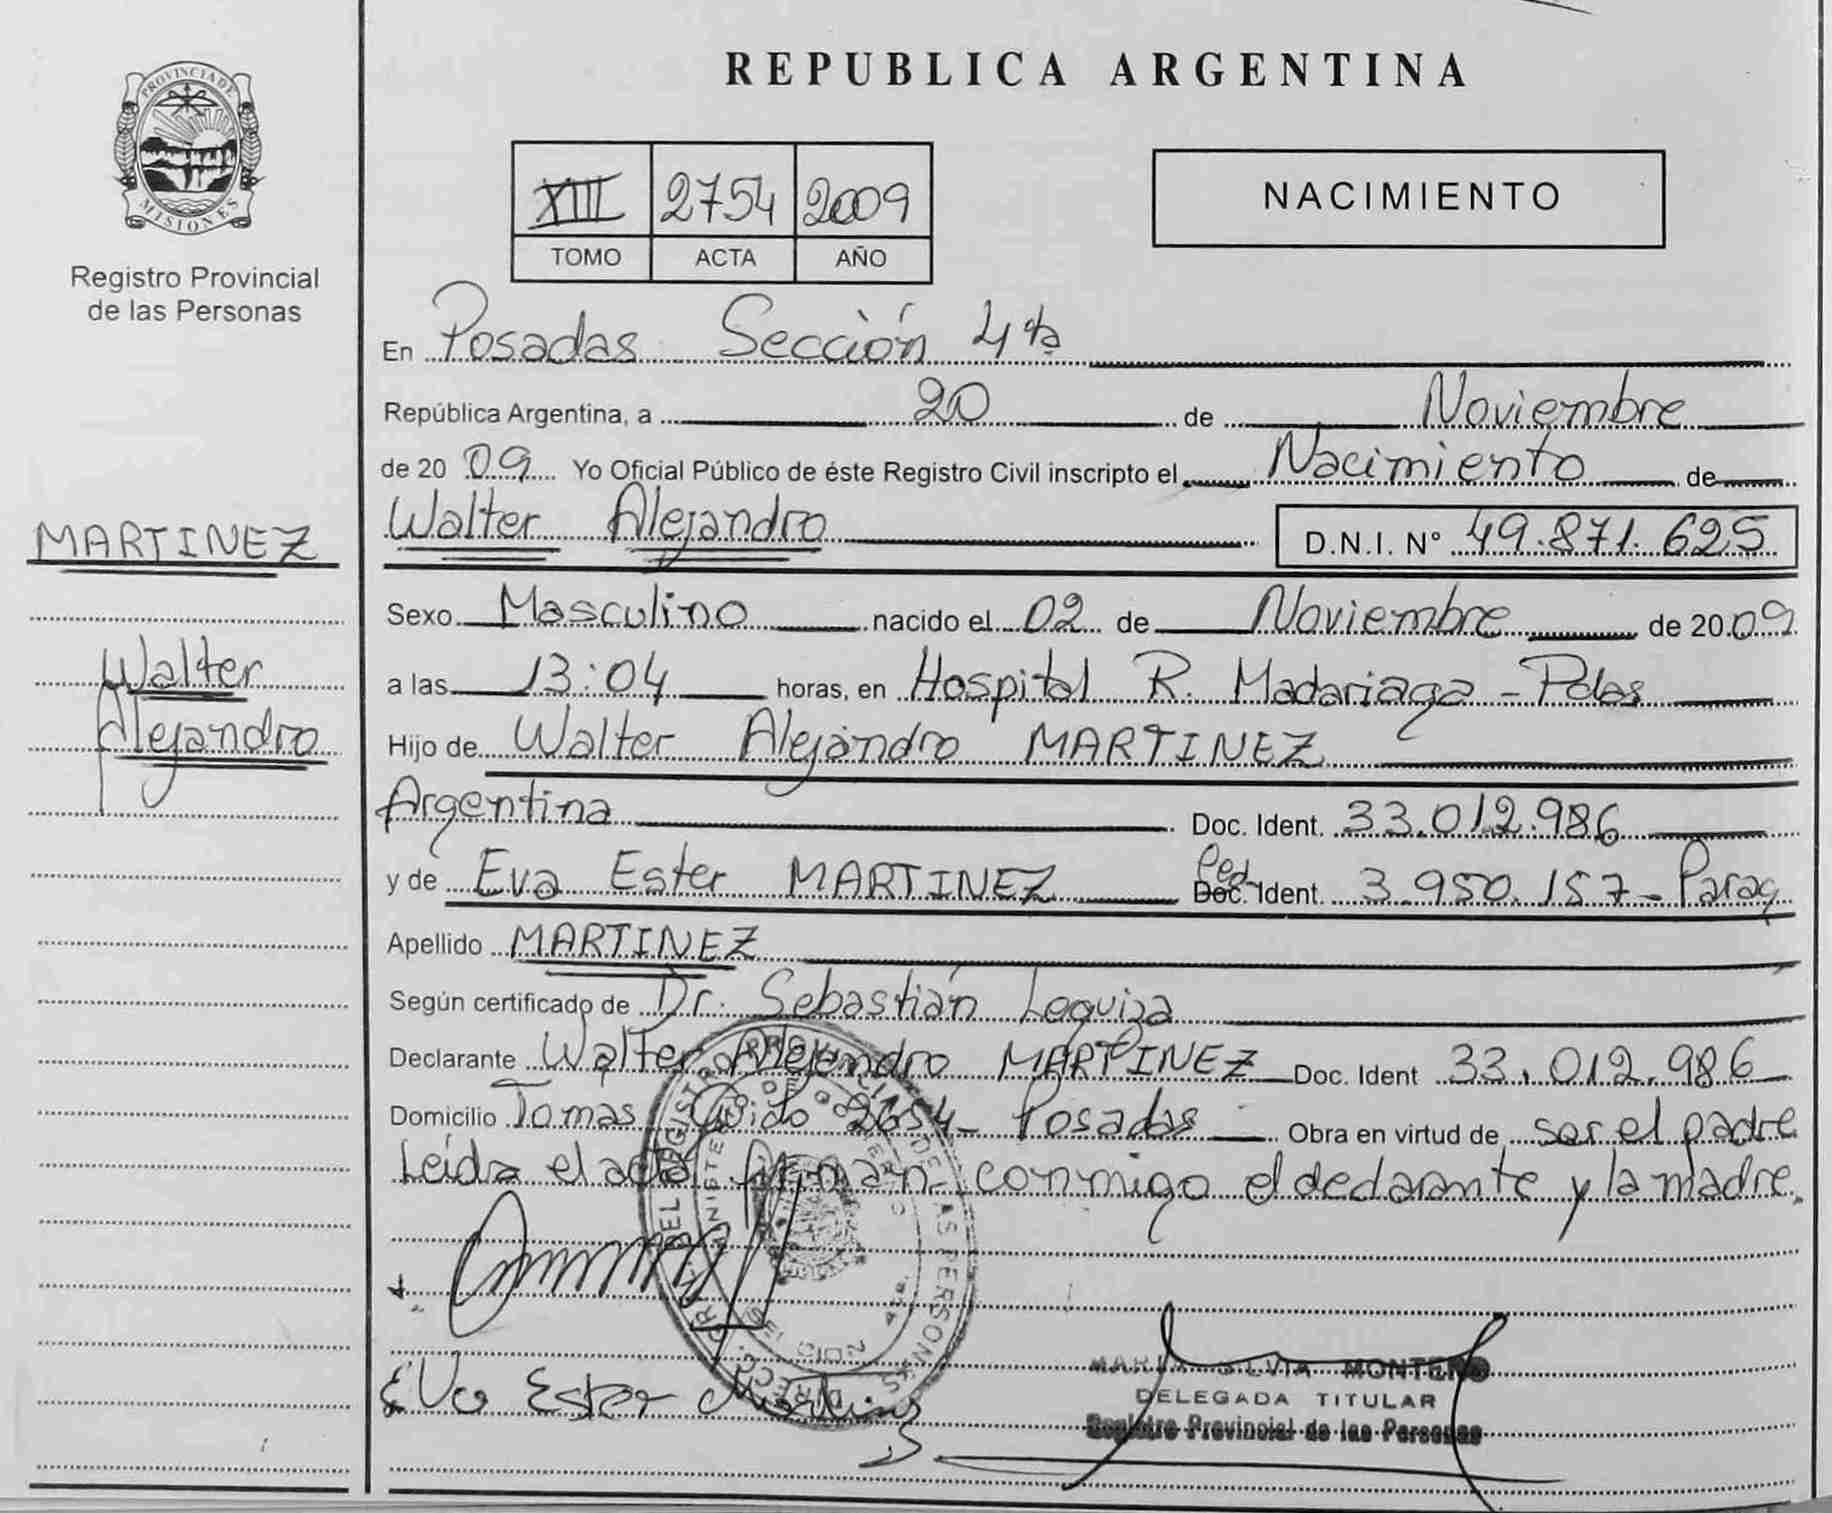 REPUBLICA ARGENTINA
PROVINCIA DE MISIONES
Registro Provincial
de las Personas
XIII 2754 2009
TOMO ACTA AÑO
NACIMIENTO
MARTINEZ
Walter
Alejandro
En Posadas Sección 4ta
República Argentina, a 20 de Noviembre
de 20 09 Yo Oficial Público de éste Registro Civil inscripto el Nacimiento de
Walter Alejandro D.N.I. N° 49.871.625
Sexo Masculino nacido el 02 de Noviembre de 20 09
a las 13:04 horas, en Hospital R. Madariaga - Pdas
Hijo de Walter Alejandro MARTINEZ
Argentina Doc. Ident. 33.012.986
y de Eva Ester MARTINEZ Ced. Doc. Ident. 3.950.157 - Parag
Apellido MARTINEZ
Según certificado de Dr. Sebastián Leguiza
Declarante Walter Alejandro MARTINEZ Doc. Ident 33.012.986
Domicilio Tomas Guido 2654 - Posadas Obra en virtud de ser el padre
Leída el acta firman conmigo el declarante y la madre.
Eva Ester Martinez
MARIA SILVIA MONTERO
DELEGADA TITULAR
Registro Provincial de las Personas